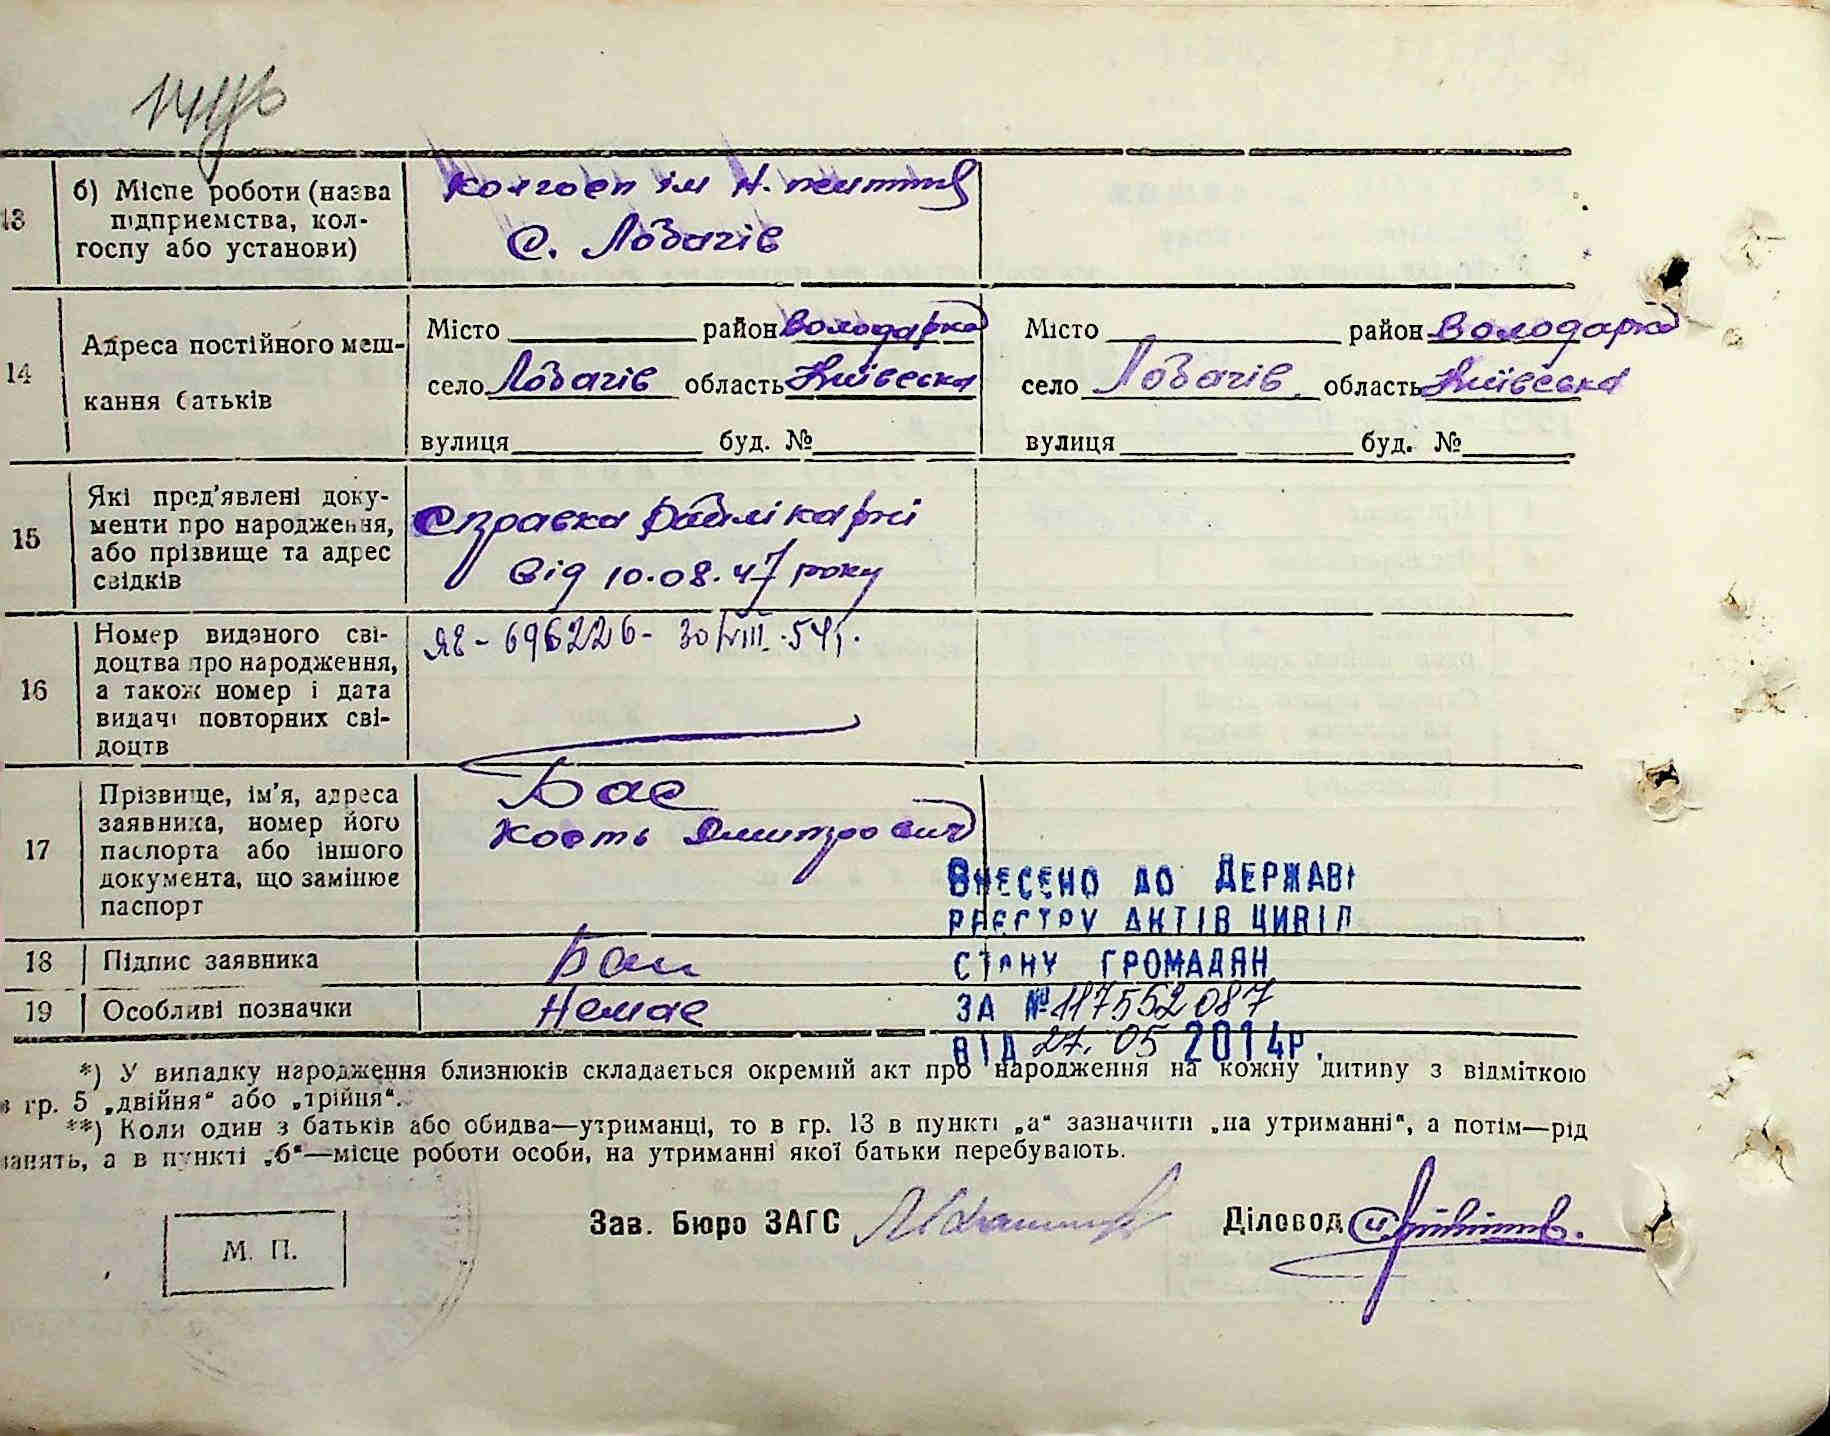 13
б) Місце роботи (назва
підприємства, кол-
госпу або установи)
Колгосп ім
с. Лобачів
14
Адреса постійного меш-
кання батьків
Місто район Володарка
село Лобачів область Київська
вулиця буд. №
Місто район Володарка
село Лобачів область Київська
вулиця буд. №
15
Які пред'явлені доку-
менти про народження,
або прізвище та адрес
свідків
Справка райлікарні
від 10.08.47 року
16
Номер виданого сві-
доцтва про народження,
а також номер і дата
видачі повторних сві-
доцтв
ЯЕ - 696226 - 30/VIII. 54р.
17
Прізвище, ім'я, адреса
заявника, номер його
паспорта або іншого
документа, що замінює
паспорт
Бас
Кость Дмитрович
ВНЕСЕНО ДО ДЕРЖАВ
РЕЄСТРУ АКТІВ ЦИВІЛ
СТАНУ ГРОМАДЯН
ЗА № 117552087
ВІД 27.05 2014Р.
18
Підпис заявника
Бас
19
Особливі позначки
Немає
*) У випадку народження близнюків складається окремий акт про народження на кожну дитину з відміткою
в гр. 5 „двійня" або „трійня".
**) Коли один з батьків або обидва—утриманці, то в гр. 13 в пункті „а" зазначити „на утриманні", а потім—рід
занять, а в пункті „б"—місце роботи особи, на утриманні якої батьки перебувають.
М. П.
Зав. Бюро ЗАГС
Діловод